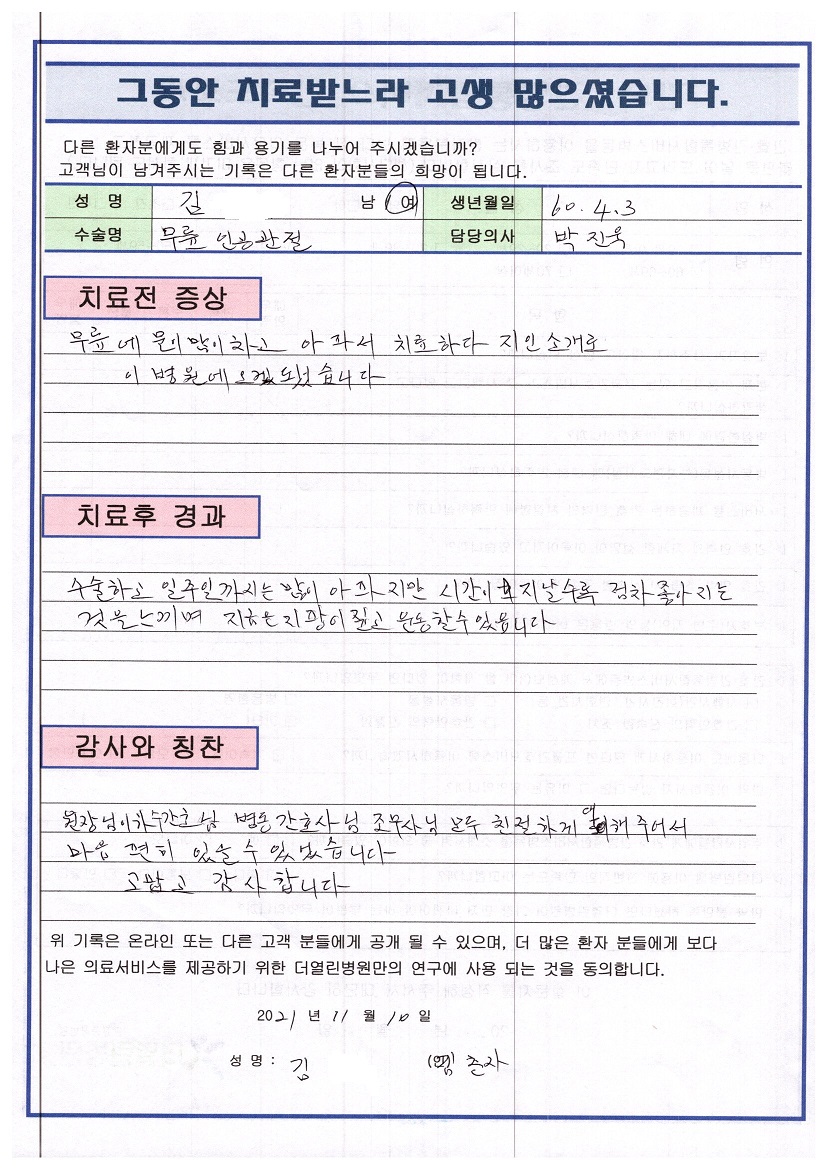 그동안 치료받느라 고생 많으셨습니다.
다른 환자분에게도 힘과 용기를 나누어 주시겠습니까?
고객님이 남겨주시는 기록은 다른 환자분들의 희망이 됩니다.
성 명 김 남 여 생년월일 60.4.3
수술명 무릎 인공관절 담당의사 박진욱
치료전 증상
무릎에 물이 많이 차고 아파서 치료하다 지인소개로
이 병원에 오게 되었습니다
치료후 경과
수술하고 일주일까지는 많이 아파지만 시간이 지날수록 점차 좋아지는
것을 느끼며 지금은 지팡이 짚고 운동할수있읍니다
감사와 칭찬
원장님이하 수간호님 병동간호사님 조무사님 모두 친절하게 해주어서
마음 편히 있을 수 있었습니다
고맙고 감사합니다
위 기록은 온라인 또는 다른 고객 분들에게 공개 될 수 있으며, 더 많은 환자 분들에게 보다
나은 의료서비스를 제공하기 위한 더열린병원만의 연구에 사용 되는 것을 동의합니다.
2021 년 11 월 10 일
성 명 : 김